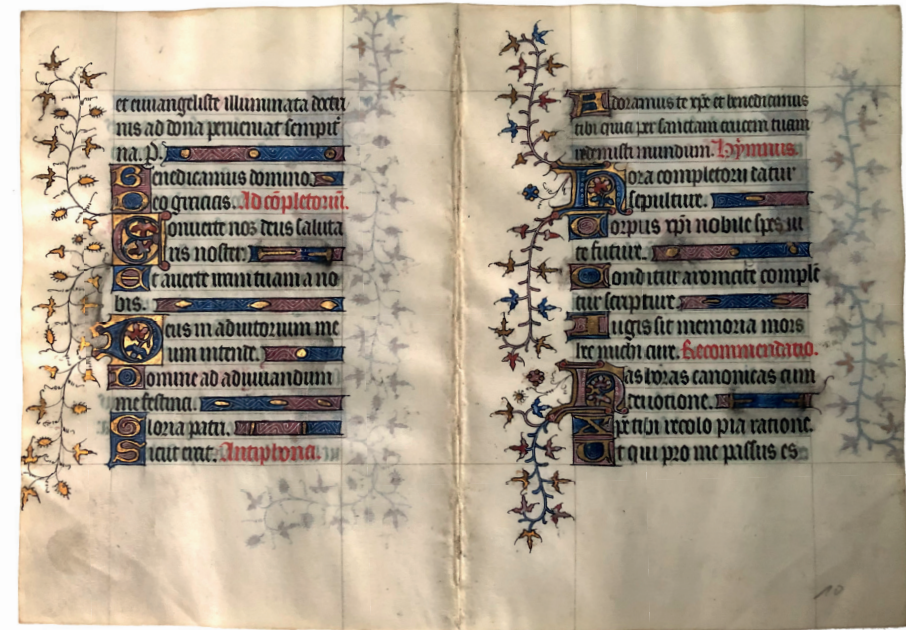 et euuangeliste illuminata doctri
nis ad dona perueniat sempit̃
na. P.
Benedicamus domino.
Deo gracias. Ad cõpletoriũ.
Conuerte nos deus saluta
ris noster.
Et auerte iram tuam a no
bis.
Deus in adiutorium me
um intende.
Domine ad adiuuandum
me festina.
Gloria patri.
Sicut erat. Antiphona.
Adoramus te xp̃e et benedicimus
tibi quia per sanctam crucem tuam
redemisti mundum. Hympnus.
Hora completorii datur
sepulture.
Corpus xp̃i nobile spes ui
te future.
Conditur aromate complẽ
tur scripture.
Iugis sit memoria mors
hec michi cure. Recommendatio.
Has horas canonicas cum
deuotione.
Xp̃e tibi recolo pia ratione.
Et qui pro me passus es
10